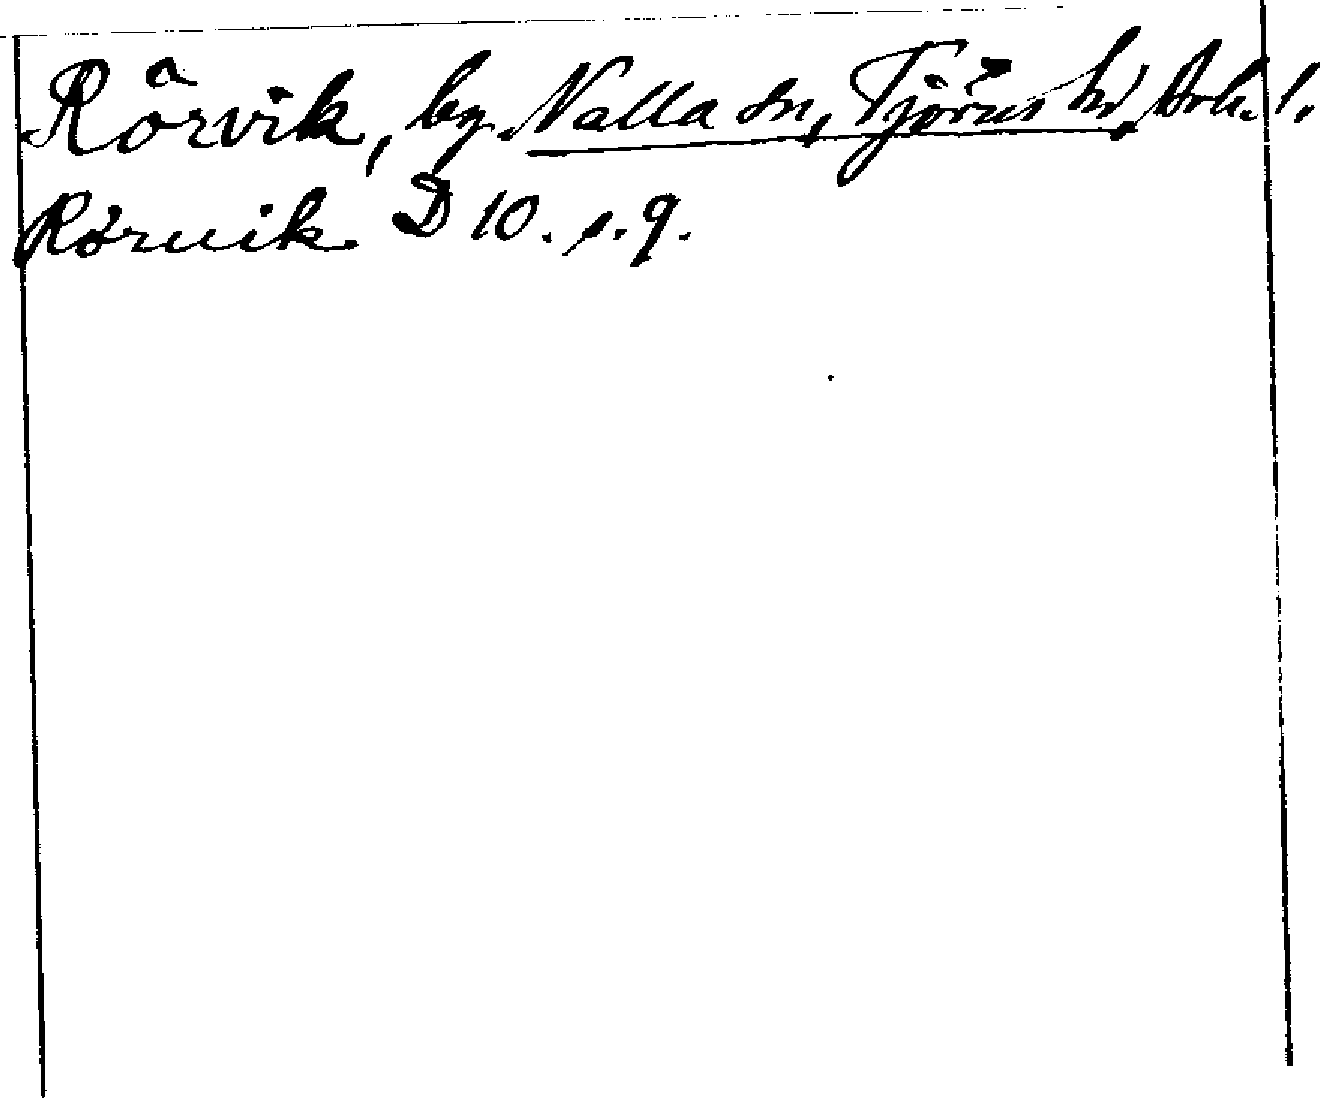 Rörvik, by Valla sn, Tjörns hd, Boh. l.
Rörwik D 10. s. 9.